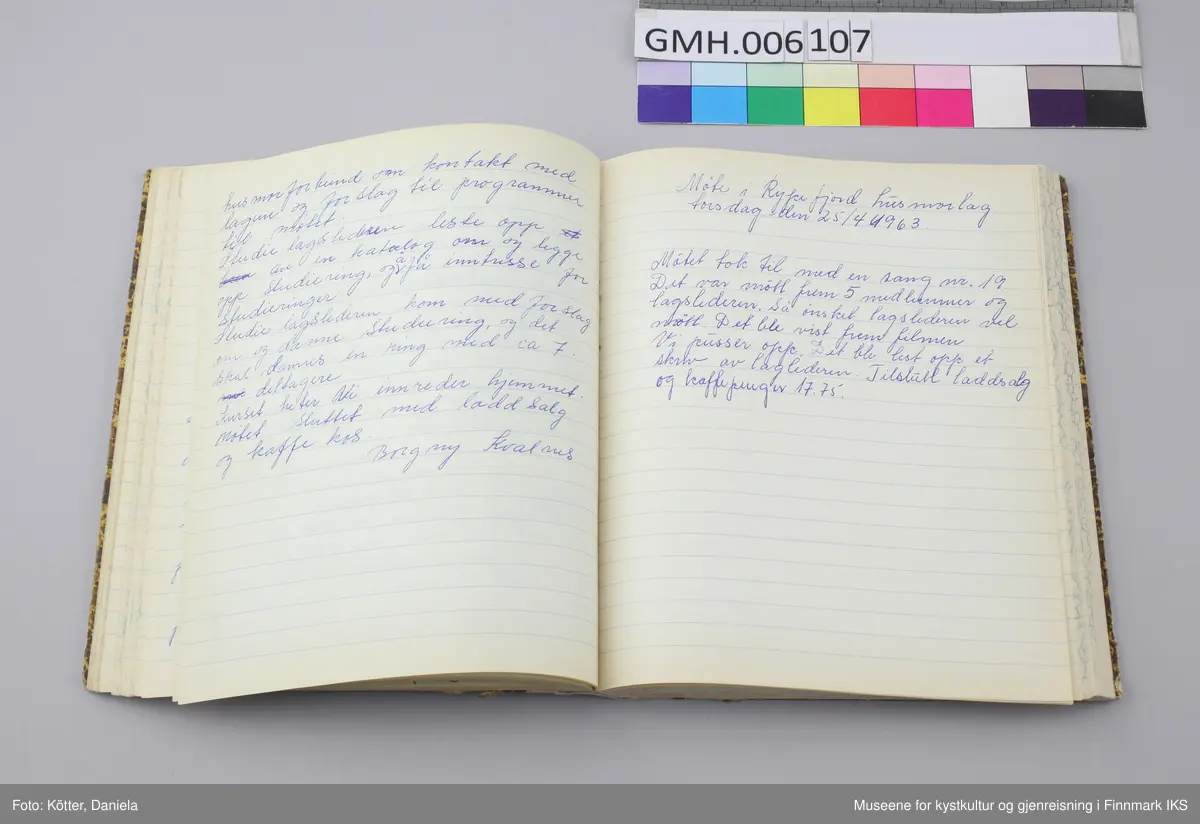 GMH.006107
husmorforbund om kontakt med
lagene og forslag til programmer
til møtet.
Studie lagslederen leste opp
av en katalog om og legge
opp studiering, og å få inntresse for
studieringer
Studie lagslederen kom med forslag
om og danne studiering, og det
skal dannes en ring med ca 7.
deltagere
Kurset heter Vi innreder hjemmet.
møtet sluttet med loddsalg
og kaffe kos.
Borgny Kvalnes
Möte i Rypefjord husmorlag
torsdag den 25/4 1963.
Mötet tok til med en sang nr. 19
Det var mött frem 5 medlemmer og
lagslederen. Så önsket lagslederen vel
mött. Det ble vist frem filmen
Vi pusser opp. Det ble lest opp et
skriv av laglederen. Tilslutt loddsalg
og kaffepenger 17.75.
Foto: Kötter, Daniela
Museene for kystkultur og gjenreisning i Finnmark IKS